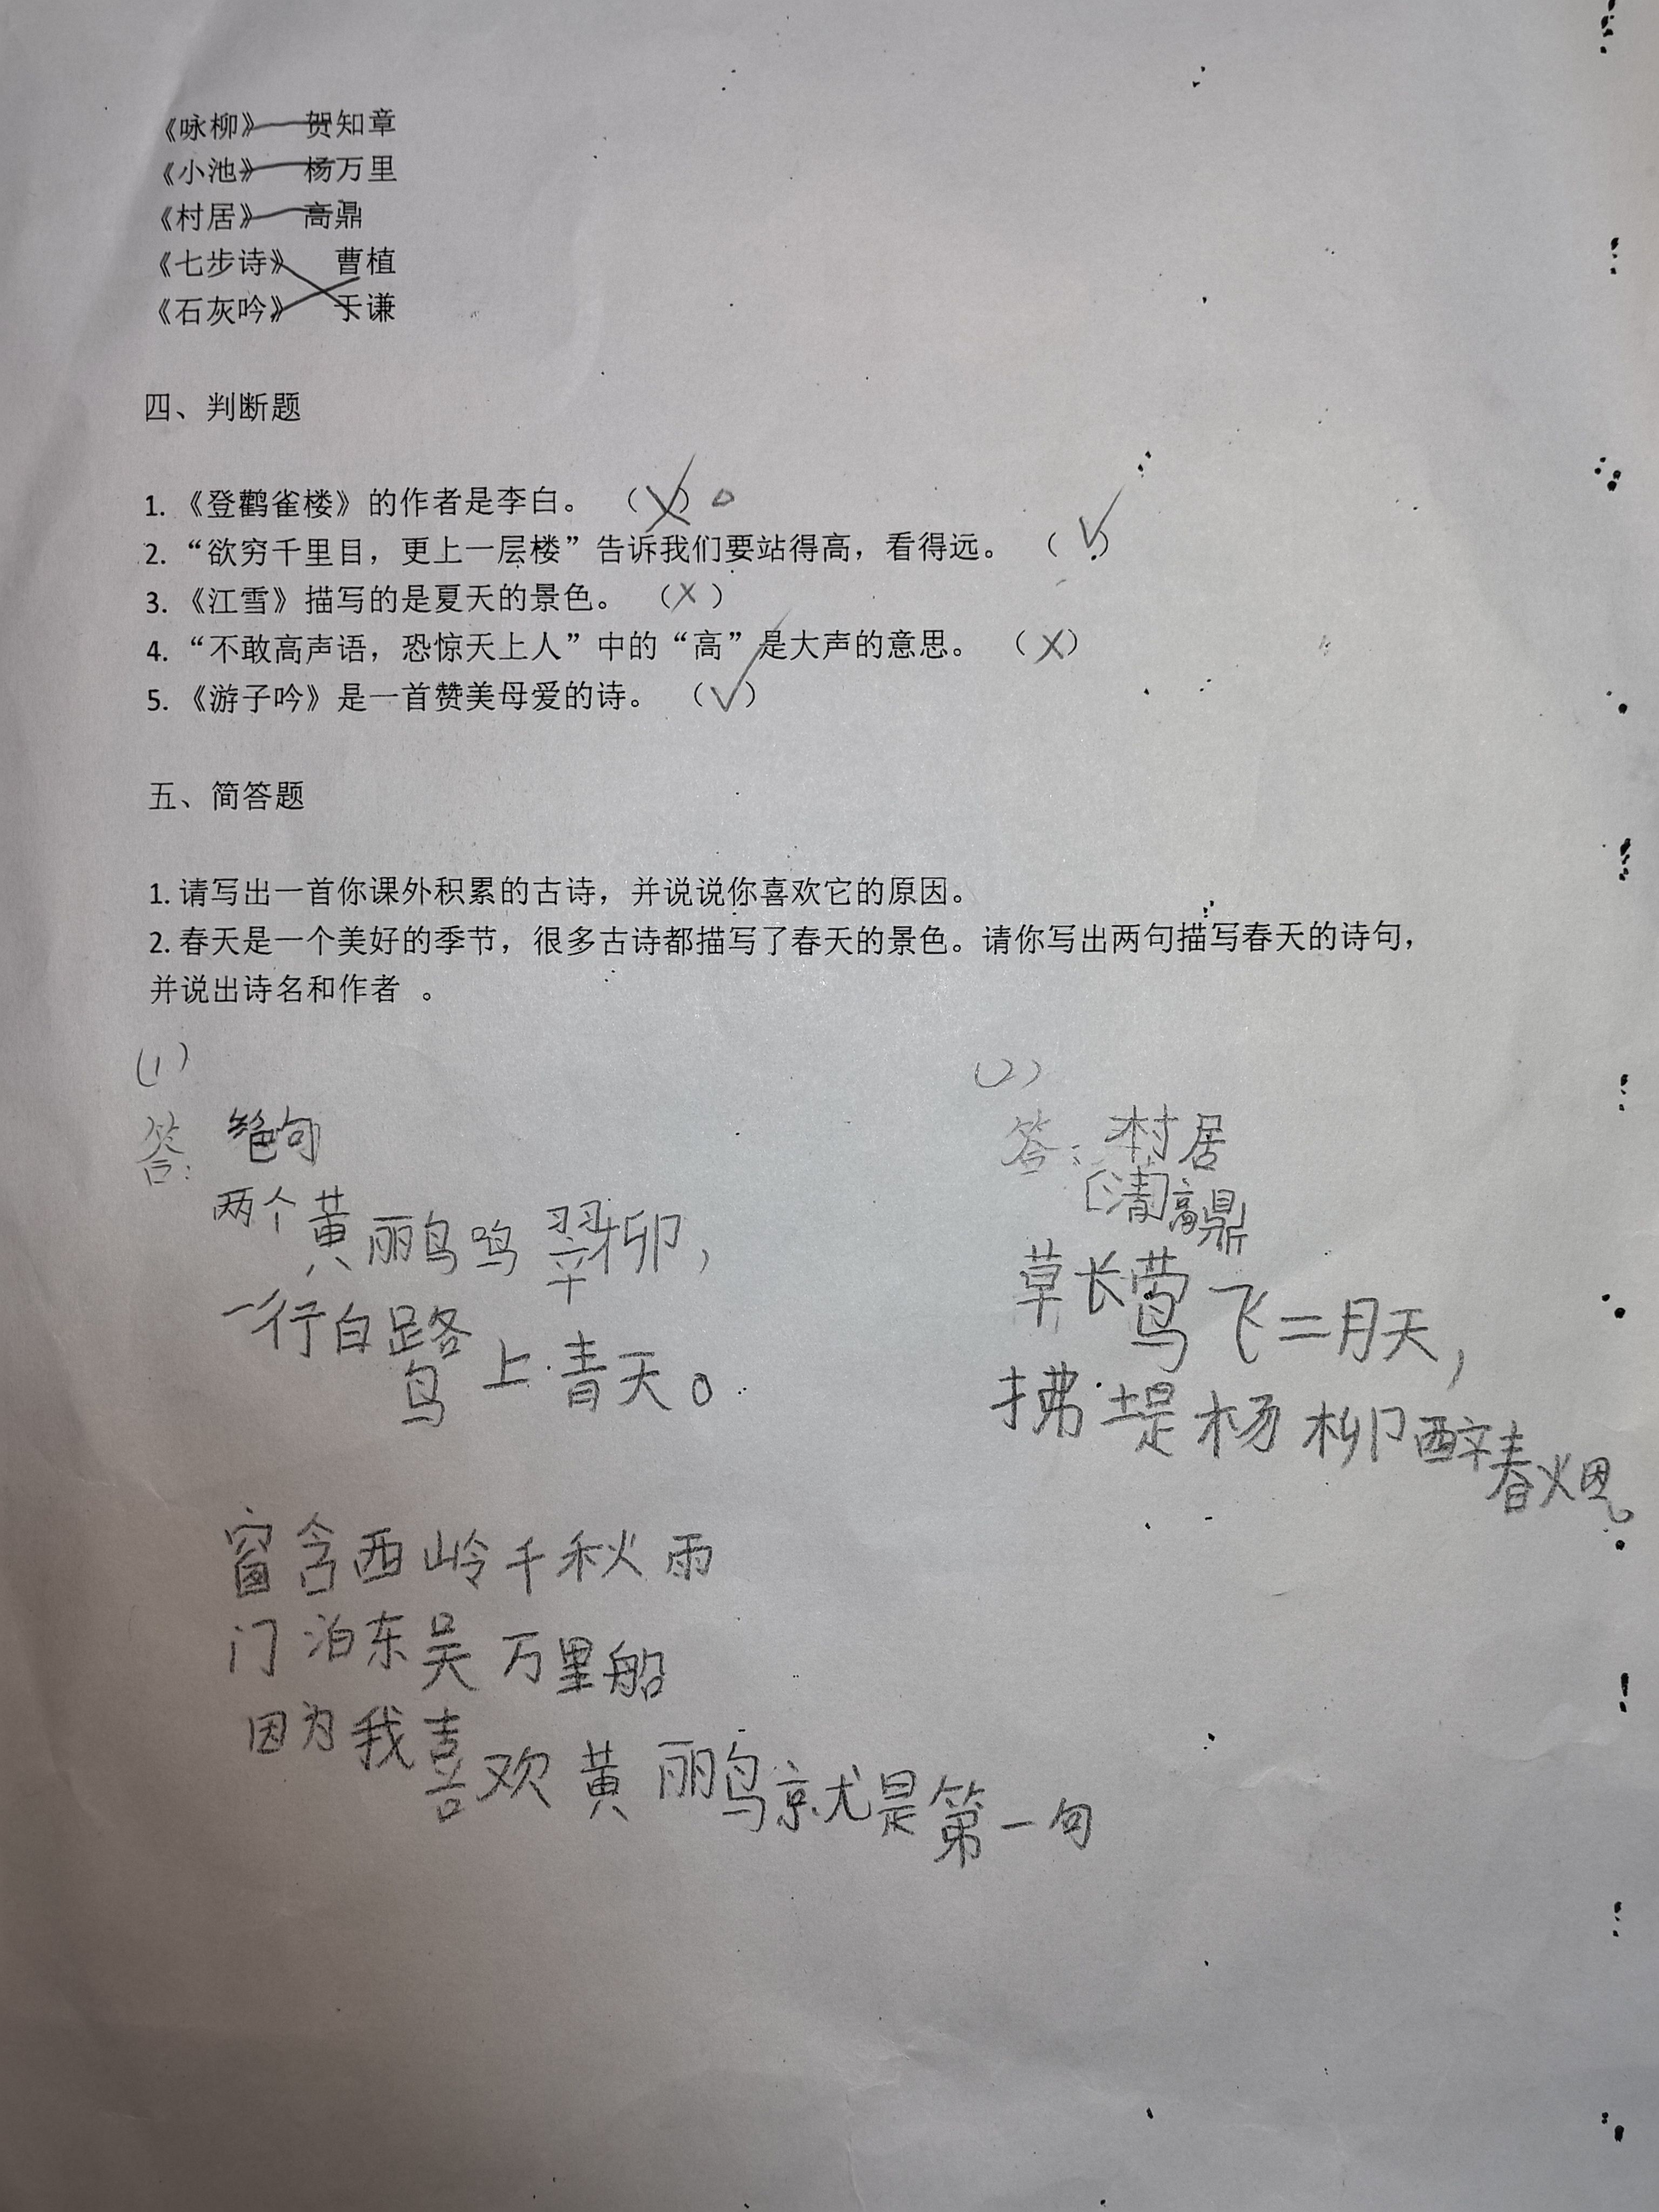 《咏柳》 贺知章
《小池》 杨万里
《村居》 高鼎
《七步诗》 曹植
《石灰吟》 于谦
四、判断题
1. 《登鹳雀楼》的作者是李白。 （×）
2. “欲穷千里目，更上一层楼”告诉我们要站得高，看得远。 （√）
3. 《江雪》描写的是夏天的景色。 （×）
4. “不敢高声语，恐惊天上人”中的“高”是大声的意思。 （×）
5. 《游子吟》是一首赞美母爱的诗。 （√）
五、简答题
1. 请写出一首你课外积累的古诗，并说说你喜欢它的原因。
2. 春天是一个美好的季节，很多古诗都描写了春天的景色。请你写出两句描写春天的诗句，
并说出诗名和作者 。
（1）
答： 绝句
两个黄鹂鸣翠柳，
一行白鹭上青天。
窗含西岭千秋雨
门泊东吴万里船
因为我喜欢黄鹂就是第一句
（2）
答：村居
[清]高鼎
草长莺飞二月天，
拂堤杨柳醉春烟。